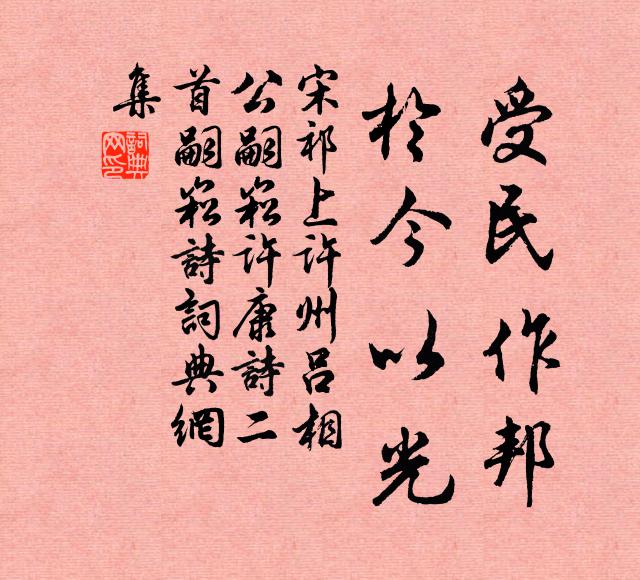 受民作邦
於今以光
宋祁上許州呂相
公嗣崧許康詩二
首嗣崧詩詞典網
集
詞典網印